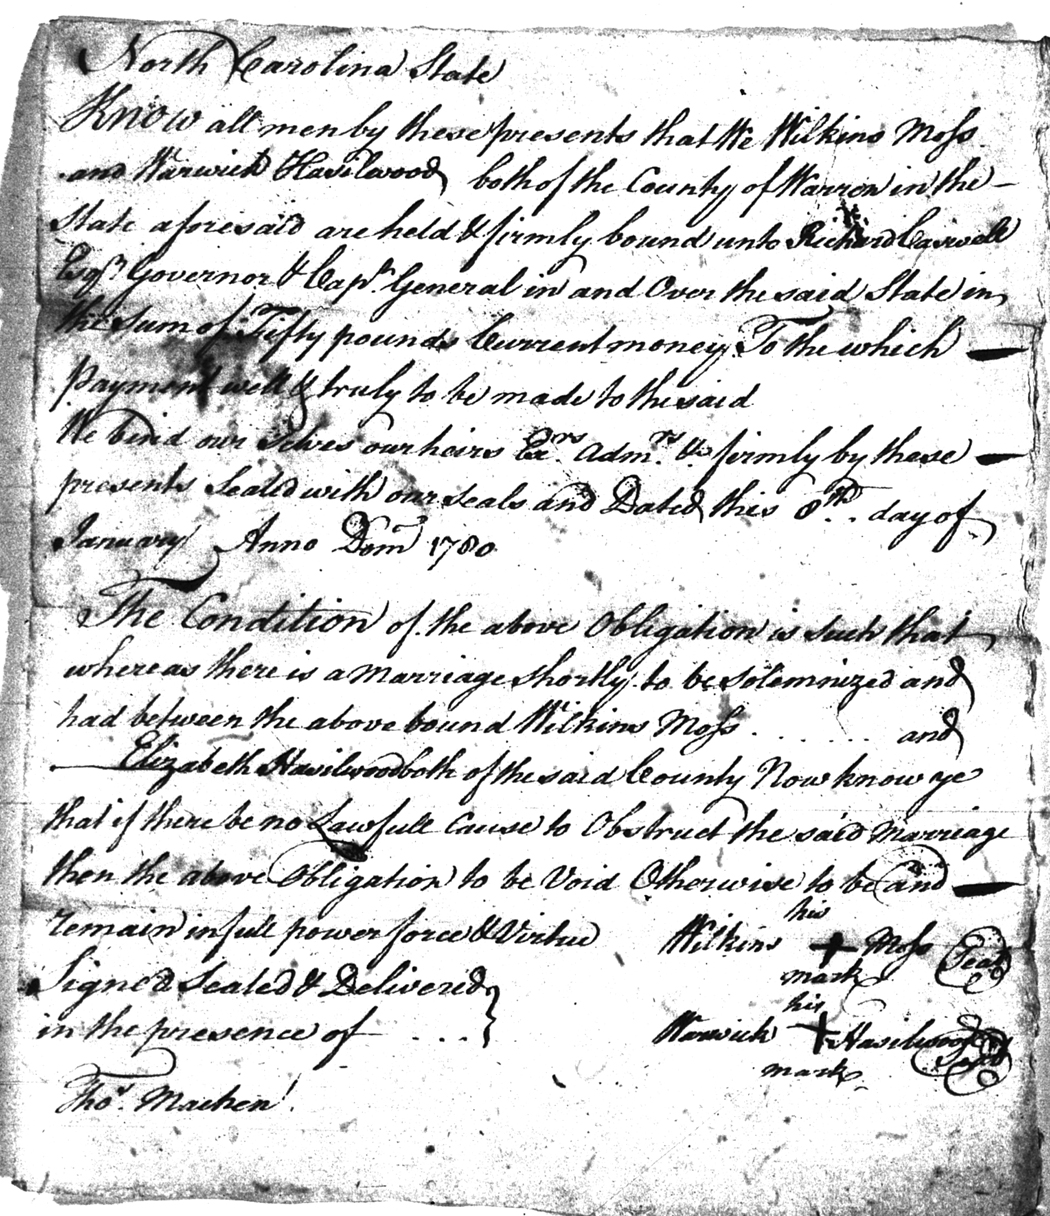 North Carolina State
Know all men by these presents that We Wilkins Moss
and Warwick Hasilwood both of the County of Warren in the
State aforesaid are held & firmly bound unto Richard Caswell
Esqr. Governor & Capt. General in and Over the said State in
the Sum of Fifty pounds Current money To the which
payment well & truly to be made to the said
We bind our Selves our heirs Exrs. Admrs. &c. firmly by these
presents Sealed with our seals and Dated this 8th. day of
January Anno Dom 1780
The Condition of the above Obligation is Such that
whereas there is a Marriage shortly to be solemnized and
had between the above bound Wilkins Moss . . . . . . and
Elizabeth Hasilwood both of the said County Now know ye
that if there be no Lawfull Cause to Obstruct the said Marriage
then the above Obligation to be Void Otherwise to be and
remain in full power force & Virtue
his
Wilkins + Moss Seal
mark
Signed Sealed & Delivered
in the presence of . . .
his
Warwick + Hasilwood Seal
mark
Thos. Machen